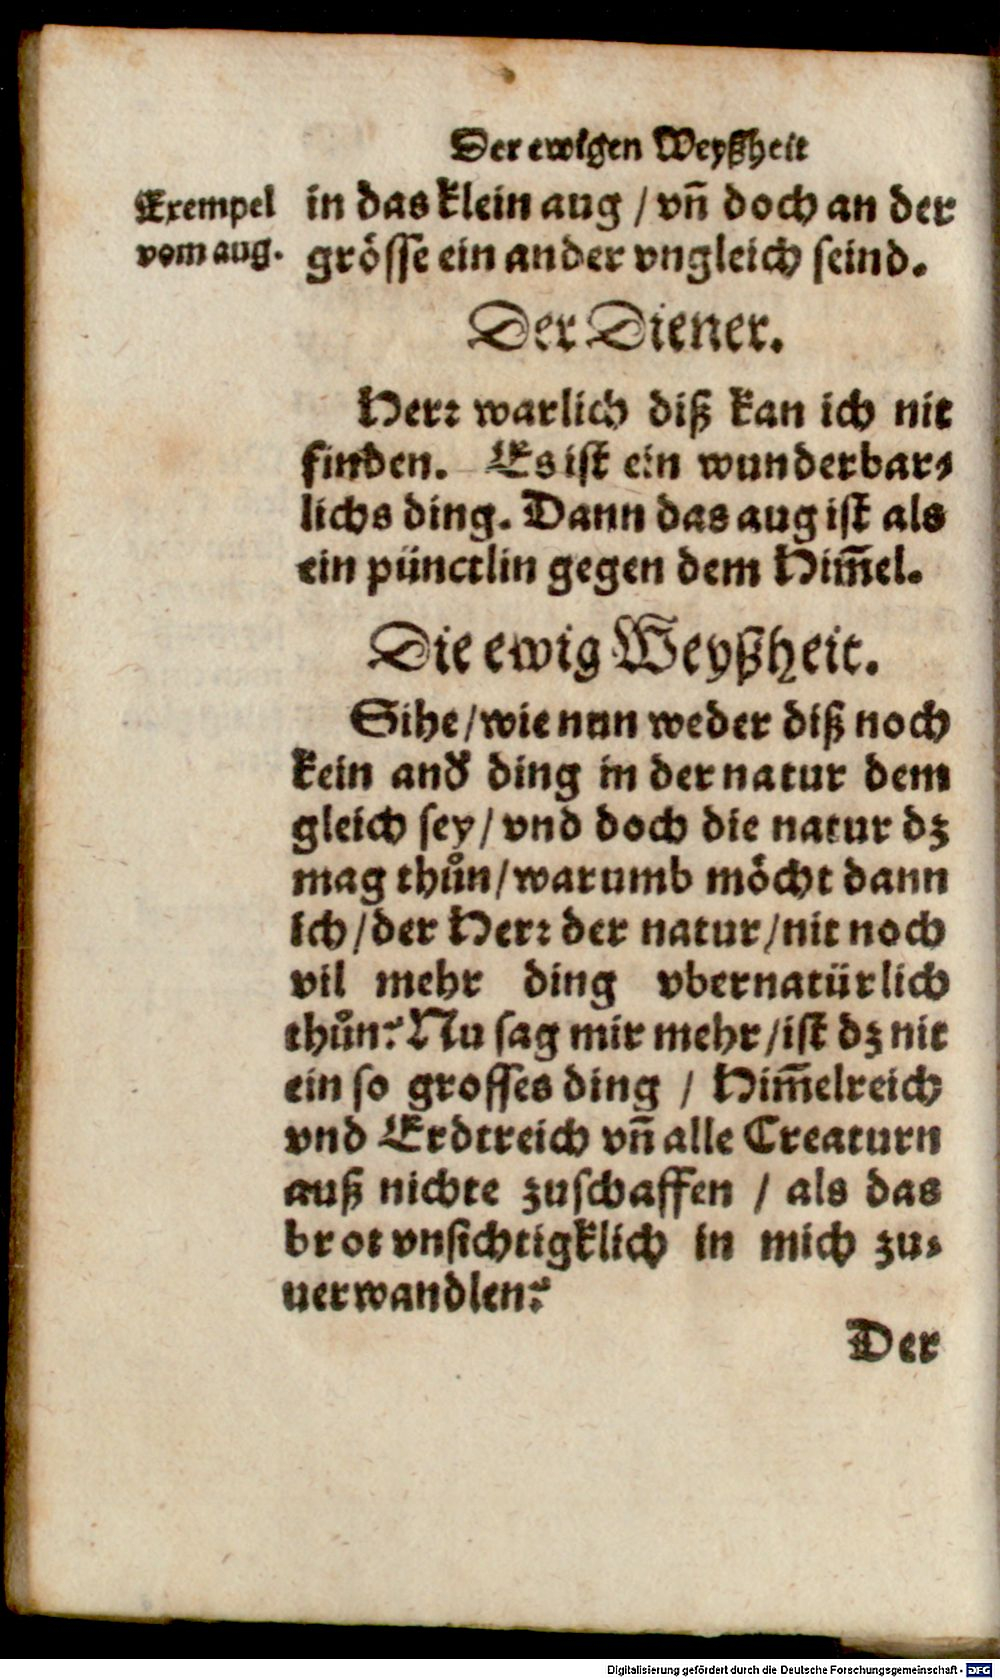 Der ewigen Weyßheit
Exempel
vom aug.
in das klein aug / vn̄ doch an der
grösse ein ander vngleich seind.
Der Diener.
Herr warlich diß kan ich nit
finden. Es ist ein wunderbar⸗
lichs ding. Dann das aug ist als
ein pünctlin gegen dem Him̄el.
Die ewig Weyßheit.
Sihe / wie nun weder diß noch
kein and̕ ding in der natur dem
gleich sey / vnd doch die natur dz
mag thůn / warumb möcht dann
ich / der Herr der natur / nit noch
vil mehr ding vbernatürlich
thůn? Nu sag mir mehr / ist dz nit
ein so grosses ding / Him̄elreich
vnd Erdtreich vn̄ alle Creaturn
auß nichte zuschaffen / als das
brot vnsichtigklich in mich zu⸗
uerwandlen?
Der
Digitalisierung gefördert durch die Deutsche Forschungsgemeinschaft - DFG